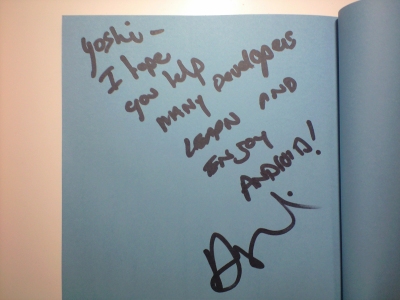 Yoshi –
I hope
you help
MANY Developers
LEARN AND
ENJOY
ANDROID!